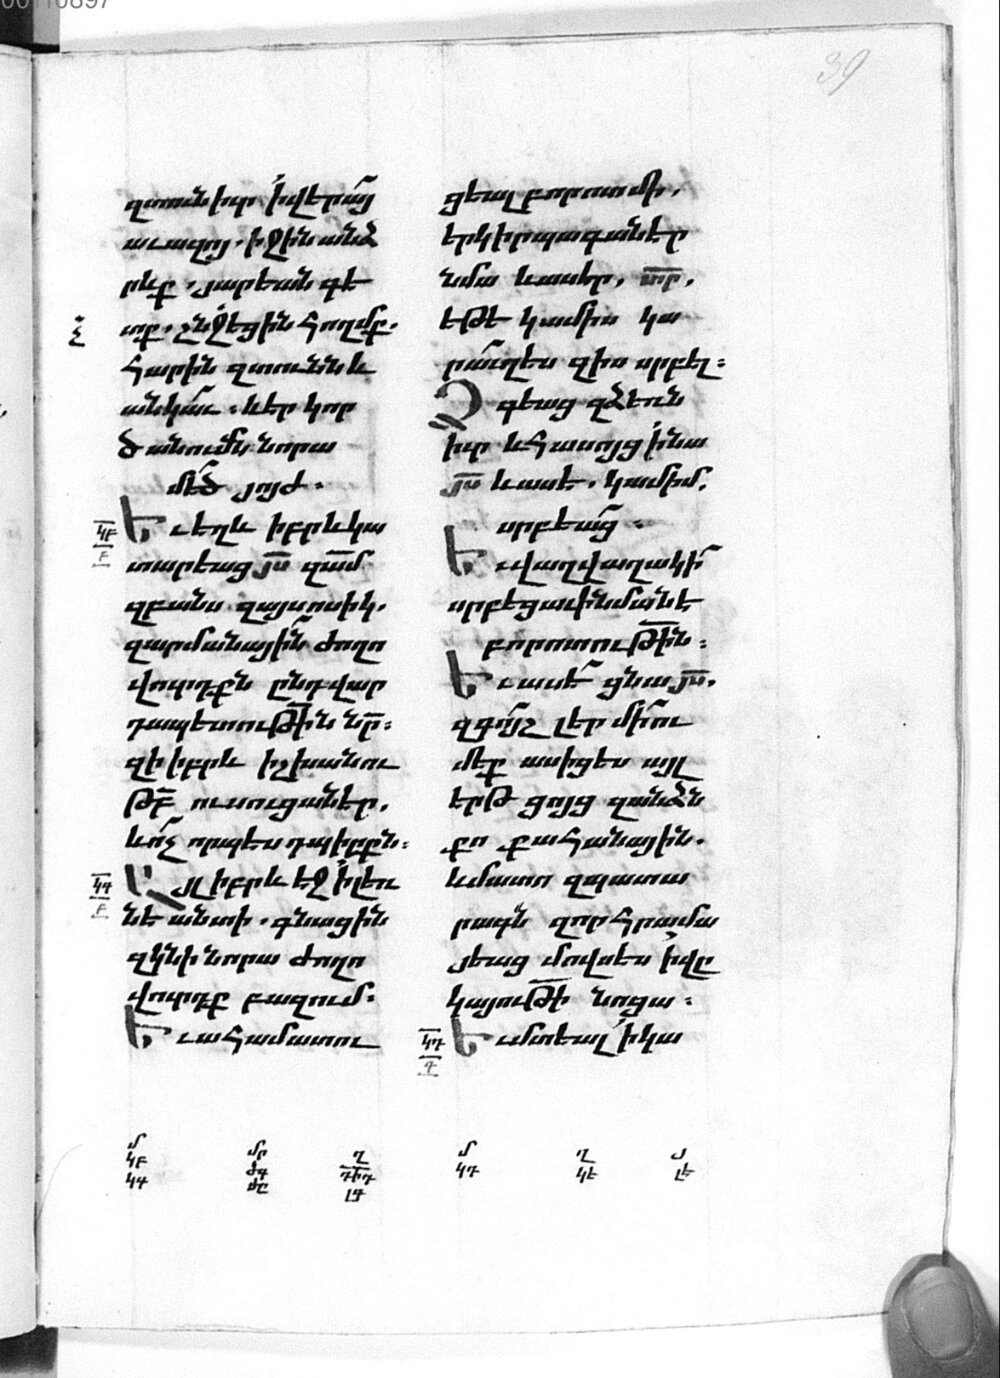 39
զտուն իւր ի վերայ
աւազոյ. իջին անձ
րևք. յարեան գե
տք. շնչեցին հողմք.
հարին զտունն և
անկաւ. և էր կոր
ծանումն նորա
մեծ յոյժ.
Եւ եղև իբրև կա
տարեաց յս զամ
զբանս զայսոսիկ.
զարմանային ժողո
վուրդքն ընդ վար
դապետութին նր։
զի իբրև իշխանու
թբ ուսուցանէր.
և ոչ որպէս դպիրքն։
Այլ իբրև էջ ի լեռ
նէ անտի. գնացին
զկնի նորա ժողո
վուրդք բազում։
Եւ ահա մատու
ցեալ բորոտ մի.
երկիր պագանէր
նմա և ասէր. տր.
եթէ կամիս կա
րաւղ ես զիս սրբել։
Ձգեաց զձեռն
իւր և հասոյց ի նա
յս և ասէ. կամիմ.
սրբեաց։
Եւ վաղվաղակի
սրբեցաւ ի նմանէ
բորոտութին։
Եւ ասէ ցնա յս.
զգոյշ լեր մի ու
մեք ասիցես այլ
երթ ցոյց զանձն
քո քահանային.
և մատո զպատա
րագն զոր հրամա
յեաց մովսէս ի վը
կայութի նոցա։
Եւ մտեալ ի կա